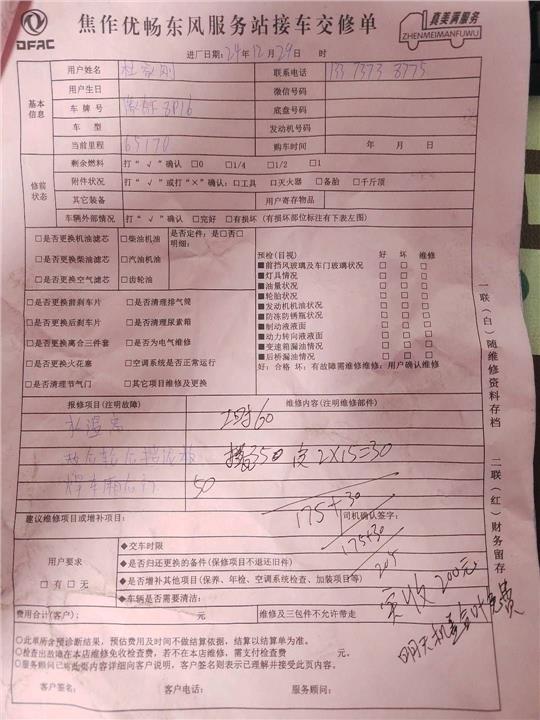 DFAC
焦作优畅东风服务站接车交修单
真美满服务
ZHENMEIMANFUWU
进厂日期：24年12月29日 时
基本信息
用户姓名
联系电话 133 7373 8775
用户生日 微信号码
车牌号 底盘号码
车型 发动机号码
当前里程 65170 购车时间 年 月 日
修前状态
剩余燃料 打“√”确认 □0 □1/4 □1/2 □1
附件状况 打“√”或打“×”确认：□工具 □灭火器 □备胎 □千斤顶
其它装备 用户寄存物品
车辆外部情况 打“√”确认 □完好 □有损坏（有损坏部位标注有下表左图）
□是否更换机油滤芯 □柴油机油 是否定件：是□否□
明细：
□是否更换柴油滤芯 □汽油机油
□是否更换空气滤芯 □齿轮油
□是否更换前刹车片 □是否清理排气筒
□是否更换后刹车片 □是否清理尿素箱
□是否更换离合三件套 □是否为电气维修
□是否更换火花塞 □空调系统是否正常运行
□是否清理节气门 □其它项目维修及更换
预检(目视) 好 坏 维修
■前挡风玻璃及车门玻璃状况 □ □ □
■灯具情况 □ □ □
■油量状况 □ □ □
■轮胎状况 □ □ □
■发动机机油状况 □ □ □
■防冻防锈瓶状况 □ □ □
■制动液液面 □ □ □
■动力转向液液面 □ □ □
■变速箱漏油情况 □ □ □
■后桥漏油情况 □ □ □
好：合格 坏：有故障需维修维修：用户确认维修
报修项目(注明故障) 维修内容(注明维修部件)
60
350 2×15=30
50
175+30
建议维修项目或增补项目： 司机确认签字：
175+30
205
用户要求
□有□无
◆交车时限
◆是否归还更换的备件(保修项目不退还旧件)
◆是否增补其他项目(保养、年检、空调系统检查、加装项目等)
◆车辆是否需要清洁：
实收200元
明天机盖免费
费用合计(客户)： 元 维修及三包件不允许带走
○此单所含预诊断结果，预估费用及时间不做结算依据，结算以结算单为准。
○检查出故障在本店维修免收检查费，若不在本店维修，需支付检查费 元。
○服务顾问已将此页内容详细向客户说明，客户签名则表示已理解并接受此页内容。
客户签名： 客户电话： 服务顾问：
一联（白）随维修资料存档
二联（红）财务留存